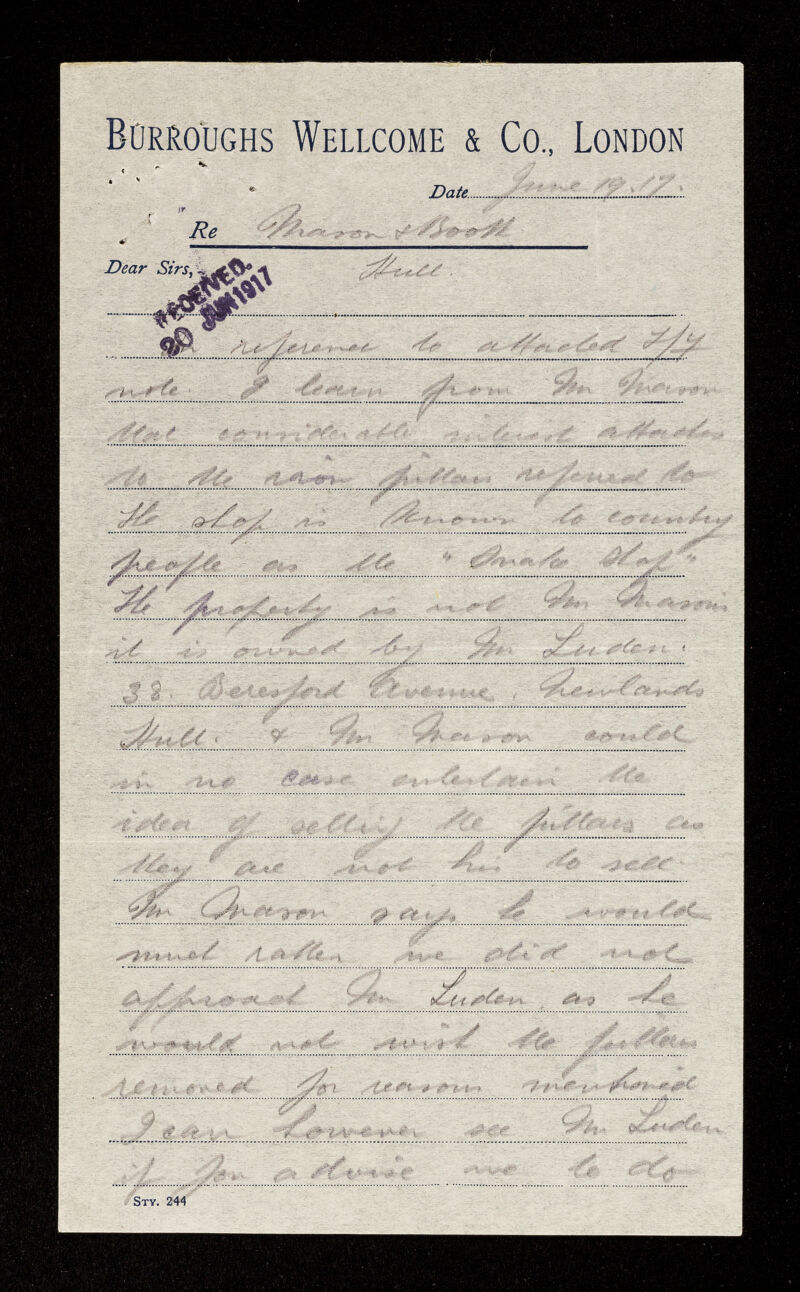 BURROUGHS WELLCOME & CO., LONDON
Date June 19. 17.
Re Mason & Booth
Dear Sirs, Hull.
RECEIVED.
20 JUN 1917
In reference to attached
note. I learn from Mr Mason
that considerable interest attaches
to the iron pillars referred to
The shop is known to country
people as the "Snake Shop"
The property is not Mr Mason's
it is owned by Mr Luden.
38. Beresford Avenue. Newlands
Hull. & Mr Mason could
in no case entertain the
idea of selling the pillars as
they are not his to sell.
Mr Mason says he would
much rather we did not
approach Mr Luden. as he
would not wish the pillars
removed for reasons mentioned
I can however see Mr Luden
if you advise me to do
STY. 244